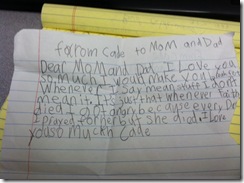 forrom Cade to MoM and Dad
Dear MoM and Dad, I Love you
so Much. I
Whenever I Say mean stufe I don't
mean it. Its just that whenever
died I got angry because every Day
I prayed forher but she died. I Love
you so Muckh Cade